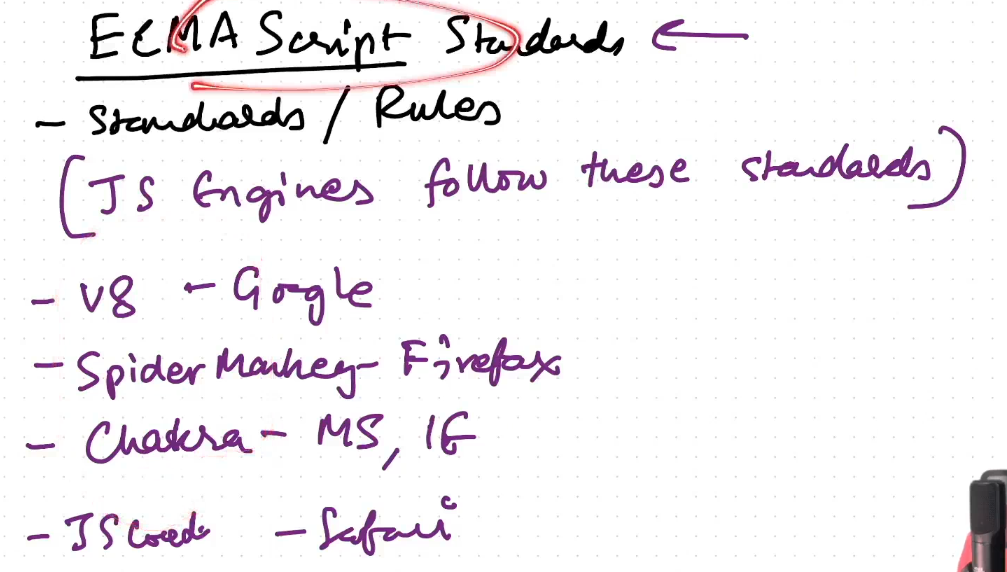 ECMA Script Standards ←
- Standards / Rules
(JS Engines follow these standards)
- V8 - Google
- Spider Monkey - Firefox
- Chakra - MS, IE
- JS - Safari